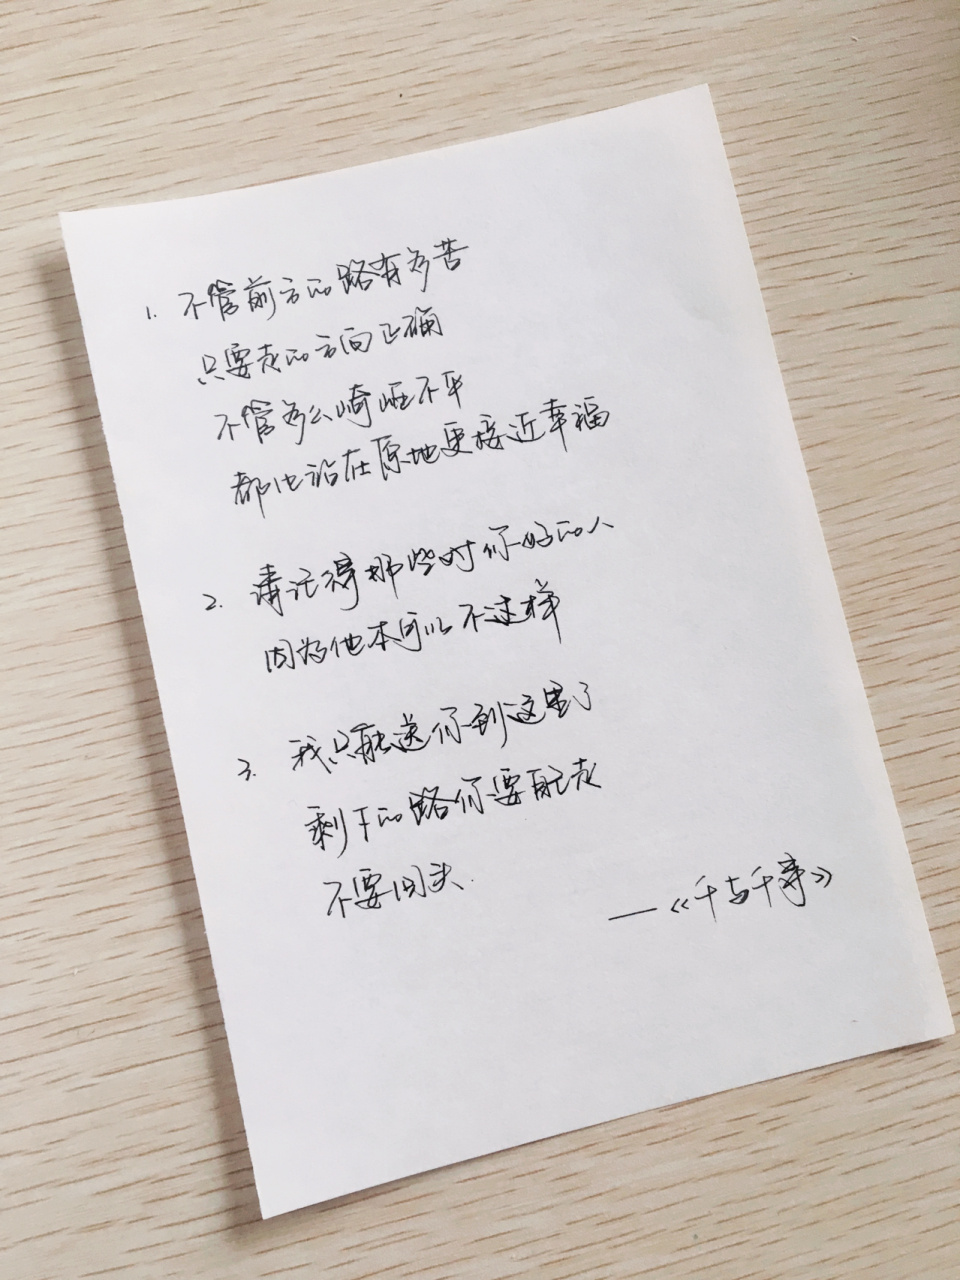 1. 不管前方的路有多苦
只要走的方向正确
不管多么崎岖不平
都比站在原地更接近幸福
2. 请记得那些对你好的人
因为他本可以不这样
3. 我只能送你到这里了
剩下的路你要自己走
不要回头.
——《千与千寻》